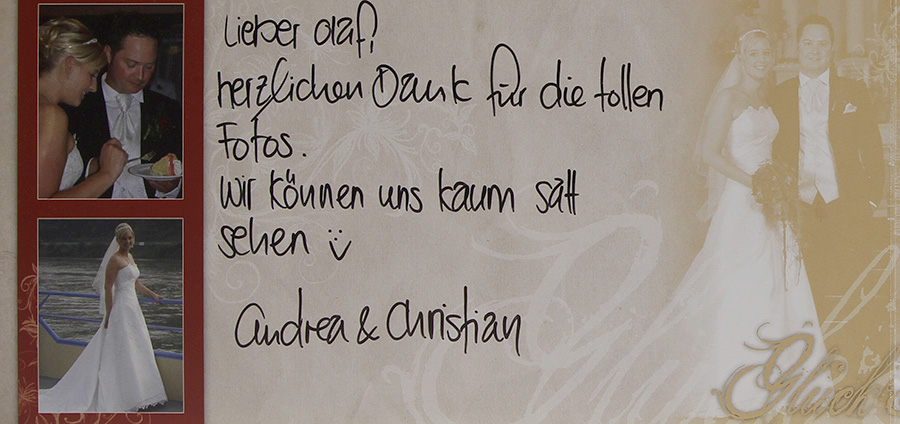 Lieber Olaf!
herzlichen Dank für die tollen
Fotos.
Wir können uns kaum satt
sehen
Andrea & Christian
Glück